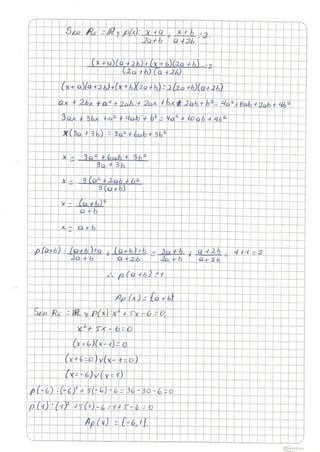 Sea Re = ℝ y p(x): x+a/2a+b + x+b/a+2b = 2.
(x+a)(a+2b)+(x+b)(2a+b)/(2a+b)(a+2b) = 2
(x+a)(a+2b)+(x+b)(2a+b)=2(2a+b)(a+2b)
ax + 2bx + a² + 2ab + 2ax + bx + 2ab + b² = 4a² + 8ab + 2ab + 4b²
3ax + 3bx + a² + 4ab + b² = 4a² + 10ab + 4b²
x(3a+3b) = 3a² + 6ab + 3b²
x = 3a² + 6ab + 3b²/3a + 3b
x = 3(a² + 2ab + b²)/3(a+b)
x = (a+b)²/a+b
x = a+b
p(a+b): (a+b)+a/2a+b + (a+b)+b/a+2b = 2a+b/2a+b + a+2b/a+2b = 1+1=2
∴ p(a+b)=1
Ap(x) = {a+b}
Sea Re = ℝ y p(x): x² + 5x - 6 = 0.
x² + 5x - 6 = 0
(x+6)(x-1)=0
(x+6=0)v(x-1=0)
(x=-6)v(x=1)
p(-6):(-6)² + 5(-6) - 6 = 36-30-6=0
p(1):(1)² + 5(1) - 6 = 1+5-6=0
Ap(x) = {-6,1}